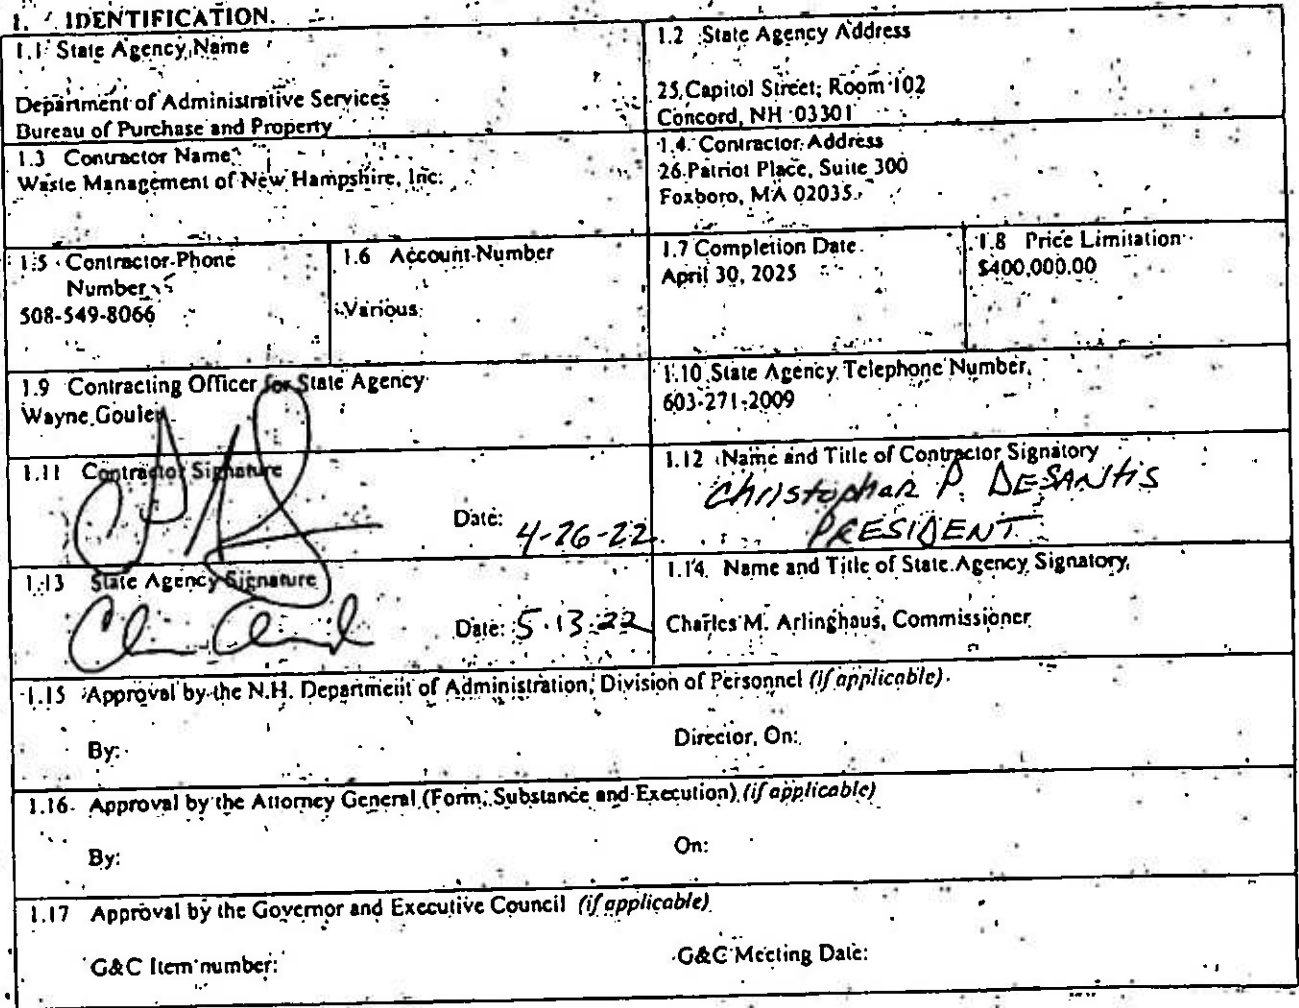 1. IDENTIFICATION.
1.1 State Agency Name
Department of Administrative Services
Bureau of Purchase and Property
1.2 State Agency Address
25 Capitol Street, Room 102
Concord, NH 03301
1.3 Contractor Name
Waste Management of New Hampshire, Inc.
1.4 Contractor Address
26 Patriot Place, Suite 300
Foxboro, MA 02035
1.5 Contractor Phone
Number
508-549-8066
1.6 Account Number
Various
1.7 Completion Date
April 30, 2025
1.8 Price Limitation
$400,000.00
1.9 Contracting Officer for State Agency
Wayne Goulet
1.10 State Agency Telephone Number
603-271-2009
1.11 Contractor Signature
Date: 4-26-22
1.12 Name and Title of Contractor Signatory
Christopher P. DESANTIS
PRESIDENT
1.13 State Agency Signature
Date: 5-13-22
1.14 Name and Title of State Agency Signatory
Charles M. Arlinghaus, Commissioner
1.15 Approval by the N.H. Department of Administration, Division of Personnel (if applicable)
By: Director, On:
1.16 Approval by the Attorney General (Form, Substance and Execution) (if applicable)
By: On:
1.17 Approval by the Governor and Executive Council (if applicable)
G&C Item number: G&C Meeting Date: